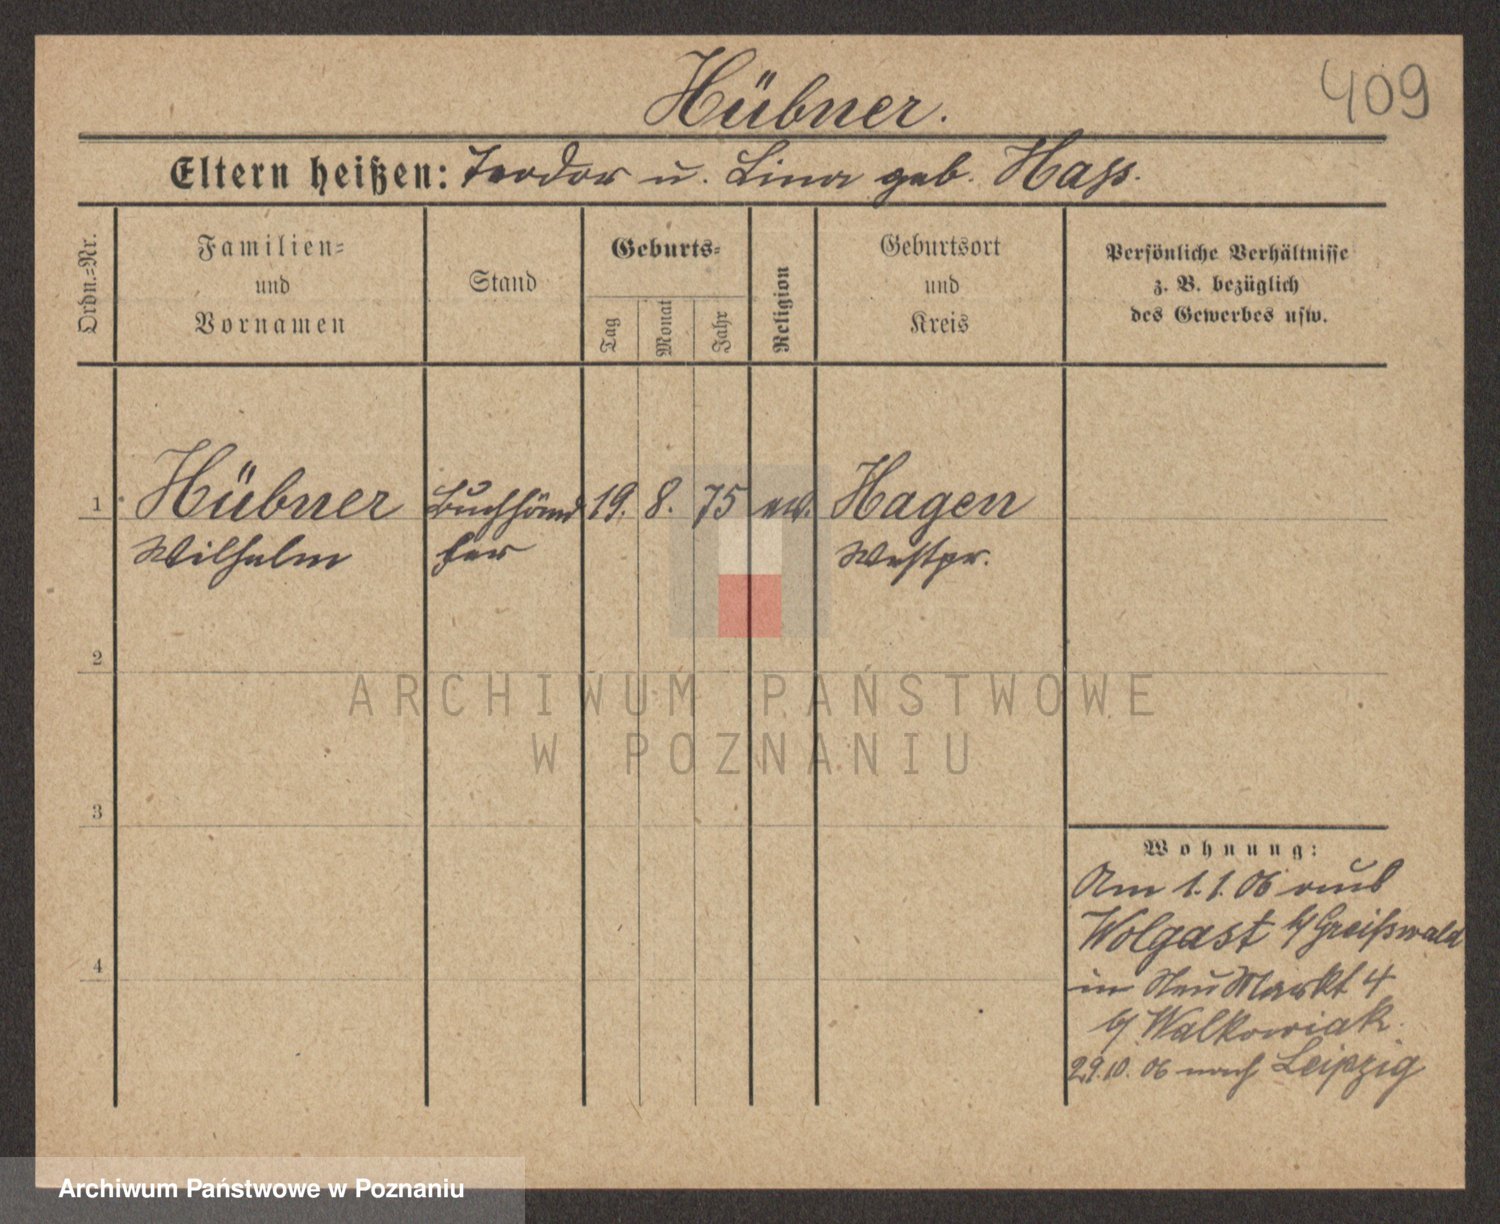 Hübner.
409
Eltern heißen: Teodor u. Lina geb. Hass.
Ordn.=Nr.
Familien=
und
Vornamen
Stand
Geburts=
Tag
Monat
Jahr
Religion
Geburtsort
und
Kreis
Persönliche Verhältnisse
z. B. bezüglich
des Gewerbes usw.
1 Hübner Buchhänd 19. 8. 75 ev. Hagen
Wilhelm ler Westpr.
2
ARCHIWUM PAŃSTWOWE
W POZNANIU
3
Wohnung:
Am 1.1.06 aus
Wolgast b/ Greifswald
4
in Neu Markt 4
b/ Walkowiak.
29.10.06 nach Leipzig
Archiwum Państwowe w Poznaniu